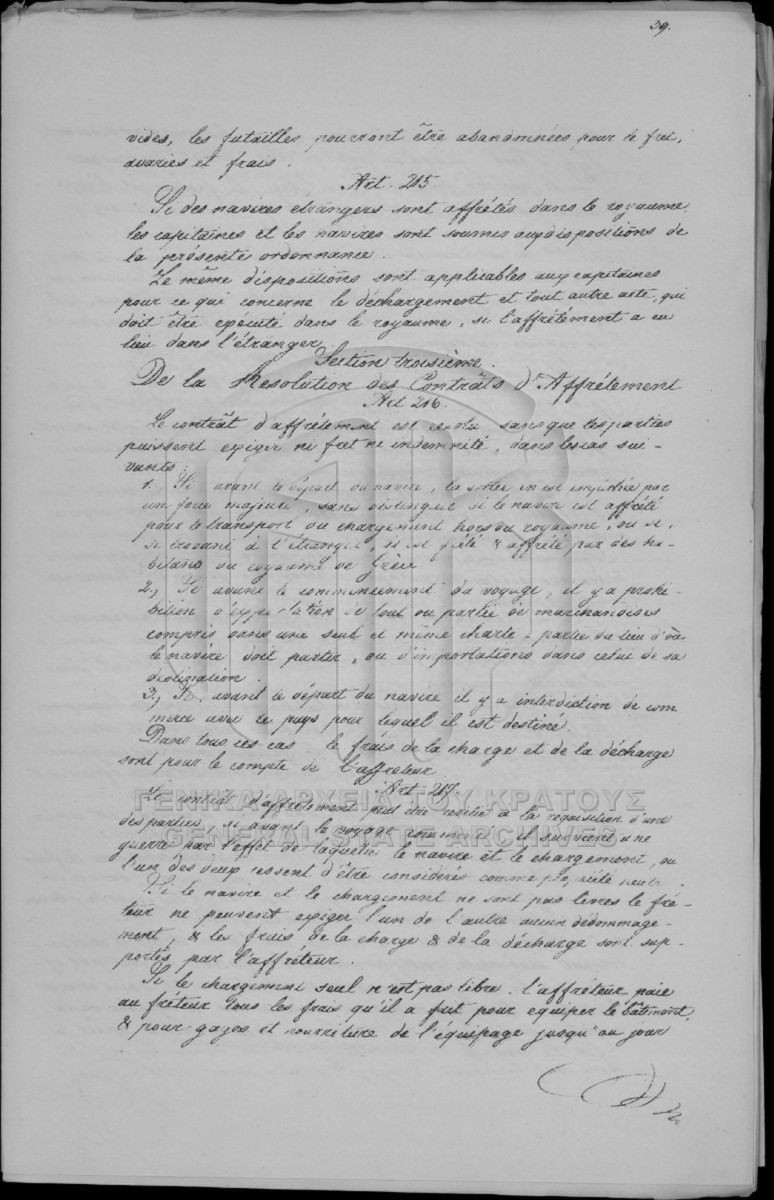 39.
vides, les futailles pourront être abandonnées pour le fret,
avaries et frais.
Art. 215.
Si des navires etrangers sont affrétés dans le royaume,
les capitaines et les navires sont soumis aux dispositions de
la présente ordonnance.
Le même dispositions sont applicables aux capitaines
pour ce qui concerne le déchargement et tout autre acte, qui
doit être exécuté dans le royaume, si l'affrétément a eu
lieu dans l'étranger.
Section troisième.
De la Resolution des Contrâts d'Affrétement
Art 216.
Le contrât d'affrétement est résolu sans que les parties
puissent exiger ni fret ni indemnité, dans les cas sui-
vants:
1. Si avant le départ du navire, la sortie en est empêchée par
un force majeure, sans distinguer si le navire est affrété
pour le transport du chargement hors du royaume, ou si,
se trouvant à l'étranger, il est frété & affrété par des ha-
bitans du royaume de Grèce
2., Si avant le commencement du voyage, il y a prohi-
bition d'exportation de tout ou partie de marchandises
compris dans une seule et même charte-partie du lieu d'où
le navire doit partir, ou d'importations dans celui de sa
destination.
3., Si avant le départ du navire il y a interdiction de com
merce avec le pays pour lequel il est destiné.
Dans tous ces cas le frais de la charge et de la décharge
sont pour le compte de l'affréteur.
Art. 217.
Le contrât d'affrétement peut être résilié a la requisition d'une
des parties, si avant le voyage commencé il survient une
guerre par l'effet de laquelle le navire et le chargement, ou
l'un des deux cessent d'être considérés comme propriété neutre.
Si le navire et le chargement ne sont pas libres le fré-
teur ne peuvent exiger l'un de l'autre aucun dédommage-
ment, & les frais de la charge & de la décharge sont sup-
portés par l'affréteur.
Si le chargement seul n'est pas libre, l'affréteur paie
au fréteur tous les frais qu'il a fait pour equiper le bâtiment,
& pour gages et nourriture de l'équipage jusqu'au jour
ΓΕΝΙΚΑ ΑΡΧΕΙΑ ΤΟΥ ΚΡΑΤΟΥΣ
GENERAL STATE ARCHIVES